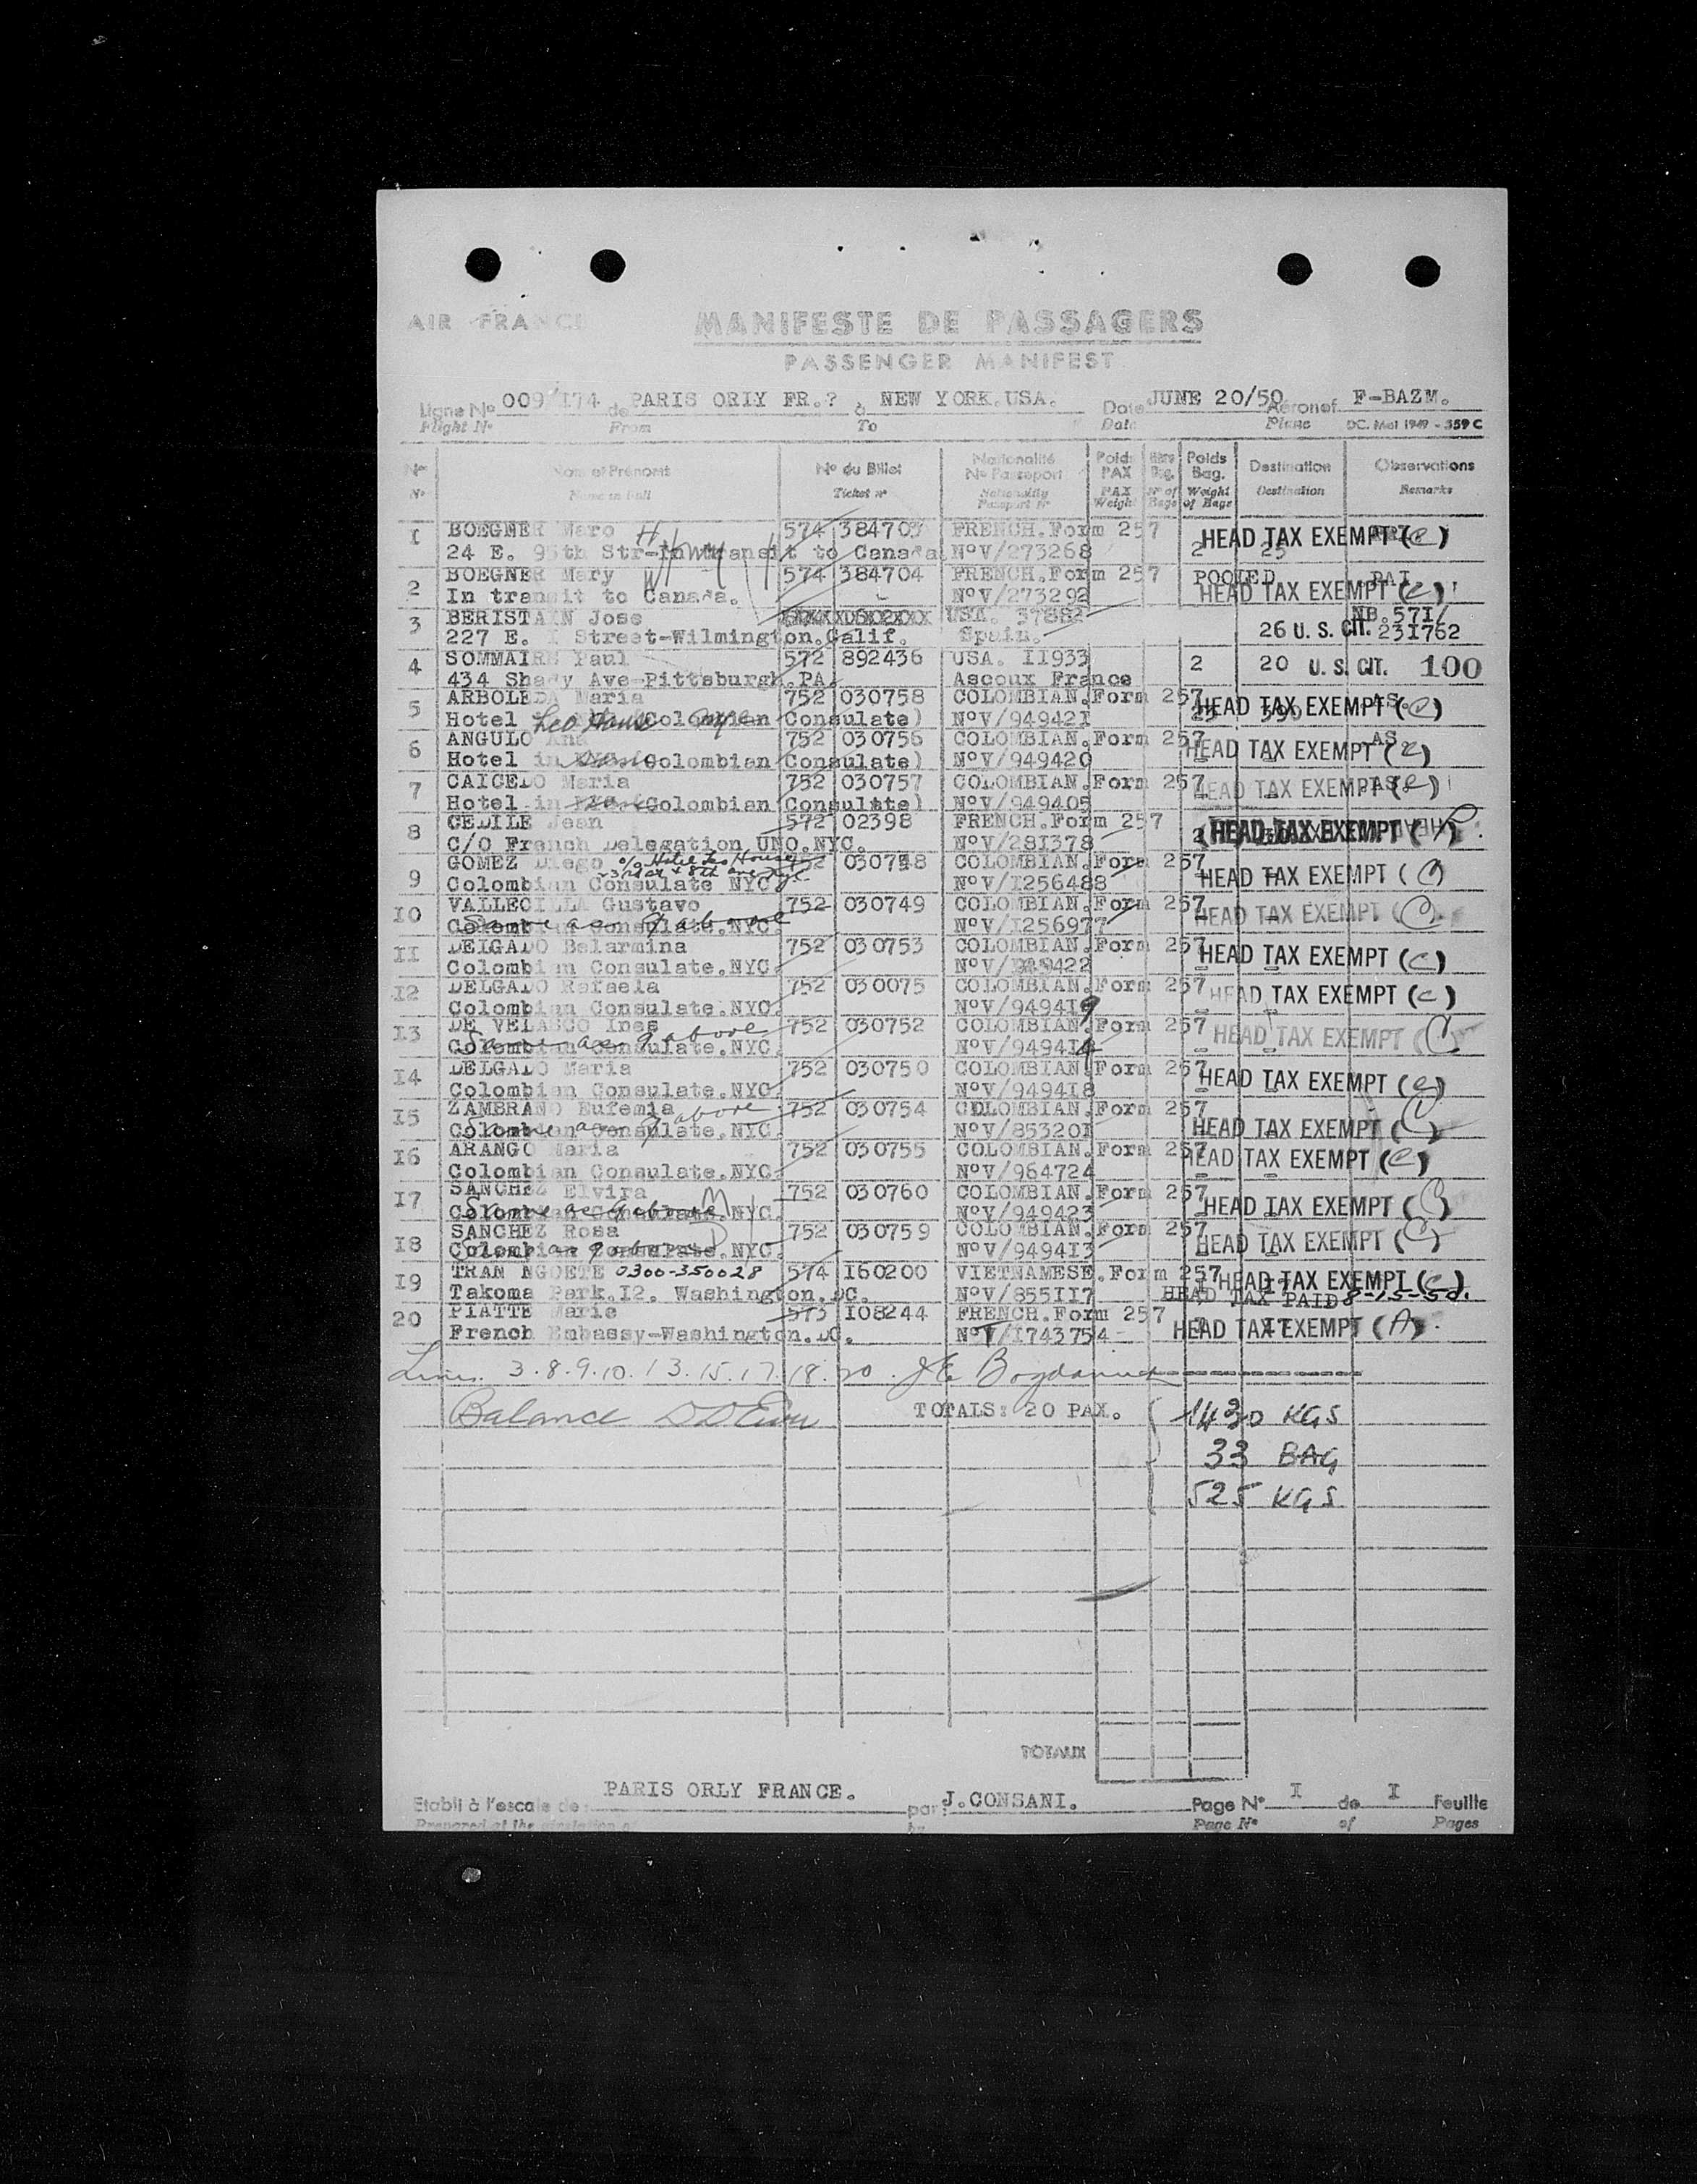 AIR FRANCE
MANIFESTE DE PASSAGERS
PASSENGER MANIFEST
Ligne No 009/I74 de PARIS ORLY FR.? à NEW YORK.USA. Date JUNE 20/50 Aéronef F-BAZM.
Flight No From To Date Plane DC. Mai 1949 - 359 C
No Nom et Prénoms No du Billet Nationalité No Passeport Poids PAX Nbre Bag. Poids Bag. Destination Observations
No Name in full Ticket no Nationality Passport No PAX Weight No of Bags Weight of Bags Destination Remarks
I BOEGNER Marc H 574 384703 FRENCH.Form 257 HEAD TAX EXEMPT (C)
24 E. 95th Str-In transit to Canada NoV/273268 2 25
2 BOEGNER Mary W 574 384704 FRENCH.Form 257 POOLED PAI
In transit to Canada. NoV/273292 HEAD TAX EXEMPT (C)
3 BERISTAIN Jose USA. 37882 NB.57I/
227 E. I Street-Wilmington.Calif. Spain. 26 U. S. CIT. 23I762
4 SOMMAIRE Paul 572 892436 USA. II933 2 20 U. S. CIT. 100
434 Shady Ave-Pittsburgh.PA. Ascoux France
5 ARBOLEDA Maria 752 030758 COLOMBIAN.Form 257 AS
Hotel Leo House Colombian Consulate) NoV/94942I HEAD TAX EXEMPT (C)
6 ANGULO Ana 752 030756 COLOMBIAN.Form 257 AS
Hotel in Colombian Consulate) NoV/949420 HEAD TAX EXEMPT (C)
7 CAICEDO Maria 752 030757 COLOMBIAN.Form 257 AS
Hotel in Colombian Consulate) NoV/949405 HEAD TAX EXEMPT (C)
8 CEDILE Jean 572 02398 FRENCH.Form 257 HEAD TAX EXEMPT
C/O French Delegation UNO.NYC. NoV/28I378
9 GOMEZ Diego c/o Hotel Leo House 752 030748 COLOMBIAN.Form 257
23rd St & 8th ave nyc.
Colombian Consulate NYC. NoV/I256488 HEAD TAX EXEMPT (C)
I0 VALLECILLA Gustavo 752 030749 COLOMBIAN.Form 257
Colombian Consulate.NYC. Same as 9 above NoV/I256977 HEAD TAX EXEMPT (C)
II DELGADO Belarmina 752 030753 COLOMBIAN.Form 257
Colombian Consulate.NYC. NoV/949422 HEAD TAX EXEMPT (C)
I2 DELGADO Rafaela 752 030075 COLOMBIAN.Form 257
Colombian Consulate.NYC. NoV/949419 HEAD TAX EXEMPT (C)
I3 DE VELASCO Ines 752 030752 COLOMBIAN.Form 257
Colombian Consulate.NYC. Same as 9 above NoV/949414 HEAD TAX EXEMPT (C)
I4 DELGADO Maria 752 030750 COLOMBIAN.Form 257
Colombian Consulate.NYC. NoV/9494I8 HEAD TAX EXEMPT (C)
I5 ZAMBRANO Eufemia 752 030754 COLOMBIAN.Form 257
Colombian Consulate.NYC. Same as 9 above NoV/85320I HEAD TAX EXEMPT (C)
I6 ARANGO Maria 752 030755 COLOMBIAN.Form 257
Colombian Consulate.NYC. NoV/964724 HEAD TAX EXEMPT (C)
I7 SANCHEZ Elvira M 752 030760 COLOMBIAN.Form 257
Colombian Consulate.NYC. Same as 9 above NoV/949423 HEAD TAX EXEMPT (C)
I8 SANCHEZ Rosa 752 030759 COLOMBIAN.Form 257
Colombian Consulate.NYC. NoV/9494I3 HEAD TAX EXEMPT (C)
I9 TRAN NGOETE 0300-350028 574 I60200 VIETNAMESE.Form 257 HEAD TAX EXEMPT (C)
Takoma Park.I2. Washington.DC. NoV/855II7 HEAD TAX PAID 8-15-50.
20 PIATTE Marie 573 I08244 FRENCH.Form 257
French Embassy-Washington.DC. NoV/I743754 HEAD TAX EXEMPT (A)
Lines 3.8.9.10.13.15.17.18.20.
Balance TOTALS: 20 PAX. 1430 KGS
33 BAG
525 KGS
TOTAUX
Etabli à l'escale de : PARIS ORLY FRANCE. par : J.CONSANI. Page No I de I Feuille
Prepared at the station of by Page No of Pages